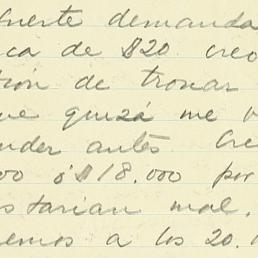 fuerte demanda
ca de $20. creo
ción de tronar
ue quizá me v
nder antes. Cre
00 ó $18.000 por
starian mal.
emos a los 20.